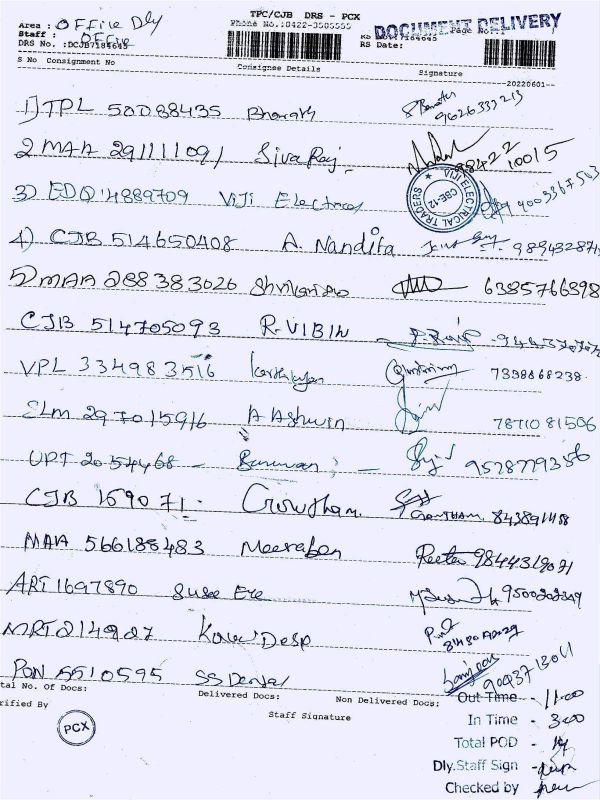 TPC/CJB DRS - PCX
DOCUMENT DELIVERY
Area : Office Dly
Phone No.:0422-3505555
Staff : Office
Page No
DRS No. :DCJB7184645
RS Date:
S No Consignment No
Consignee Details
Signature
20220601
1) TPL 50088435 Bharath 9626333213
2 MAA 291111091 Siva Raj 98422 10015
3) EDQ 4889709 ViJi Electrical
VIJI ELECTRICAL TRADERS CBE-12
4) CJB 514650408 A. Nandita
5) MAA 288383026 6385766898
CJB 514705093 R.VIBIN
VPL 334983516 Karthikeyan 7398668238
SLM 297015916 A Ashwin 7871081506
UPT 2054468 - 9578779356
CJB 159071 Gowtham. GOWTHAM.
MAA 566188483 Meeraben 9844319071
ART 1697890 Susee Ere
MRT 214927
PON 5510595 SS Dental 9003713011
tal No. Of Docs:
Delivered Docs:
Non Delivered Docs:
Out Time - 11.00
rified By
PCX
Staff Signature
In Time - 3.00
Total POD - 14
Dly.Staff Sign -
Checked by